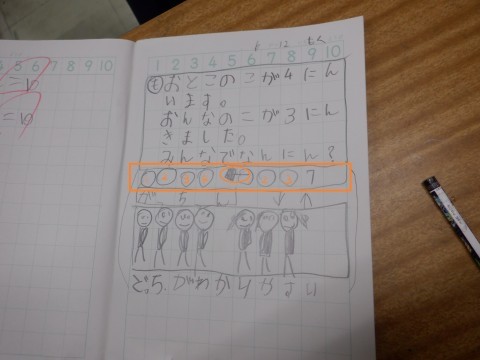 1 2 3 4 5 6 7 8 9 10
もおとこのこが4にん
います。
おんなのこが3にん
きました。
みんなでなんにん?
7
どっちがわかりやすい
4 5 6 7 8 9 10
=10
=10